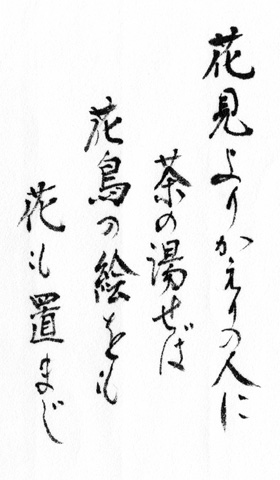 花見よりかえりの人に
茶の湯せば
花鳥の絵をも
花も置まじ